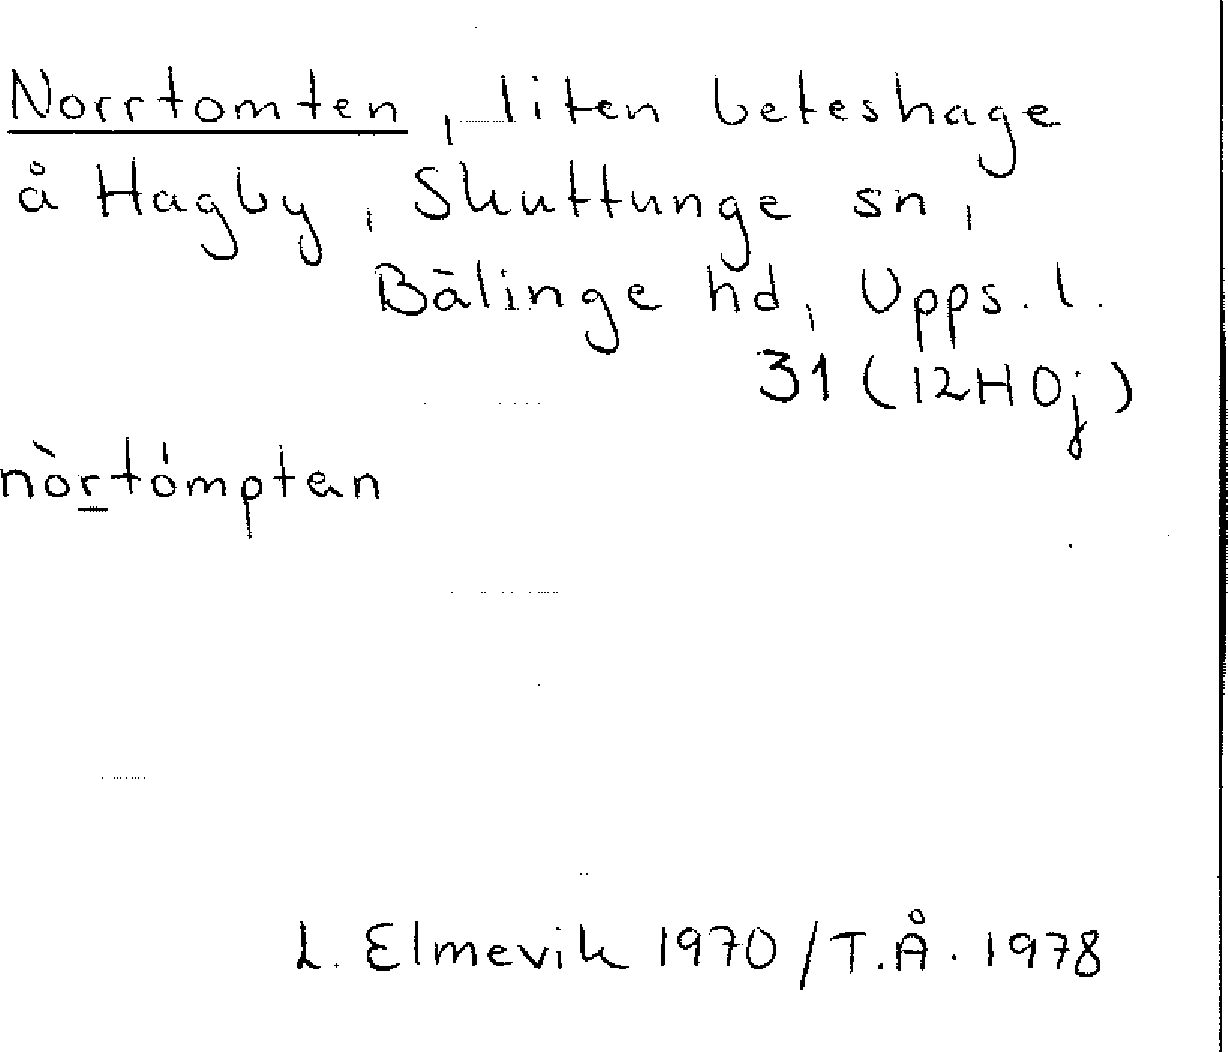 Norrtomten, liten beteshage
å Hagby, Skuttunge sn,
Bälinge hd, Upps. l.
31 (12H0j)
nòr̲tómptan
L. Elmevik 1970/T.Å. 1978